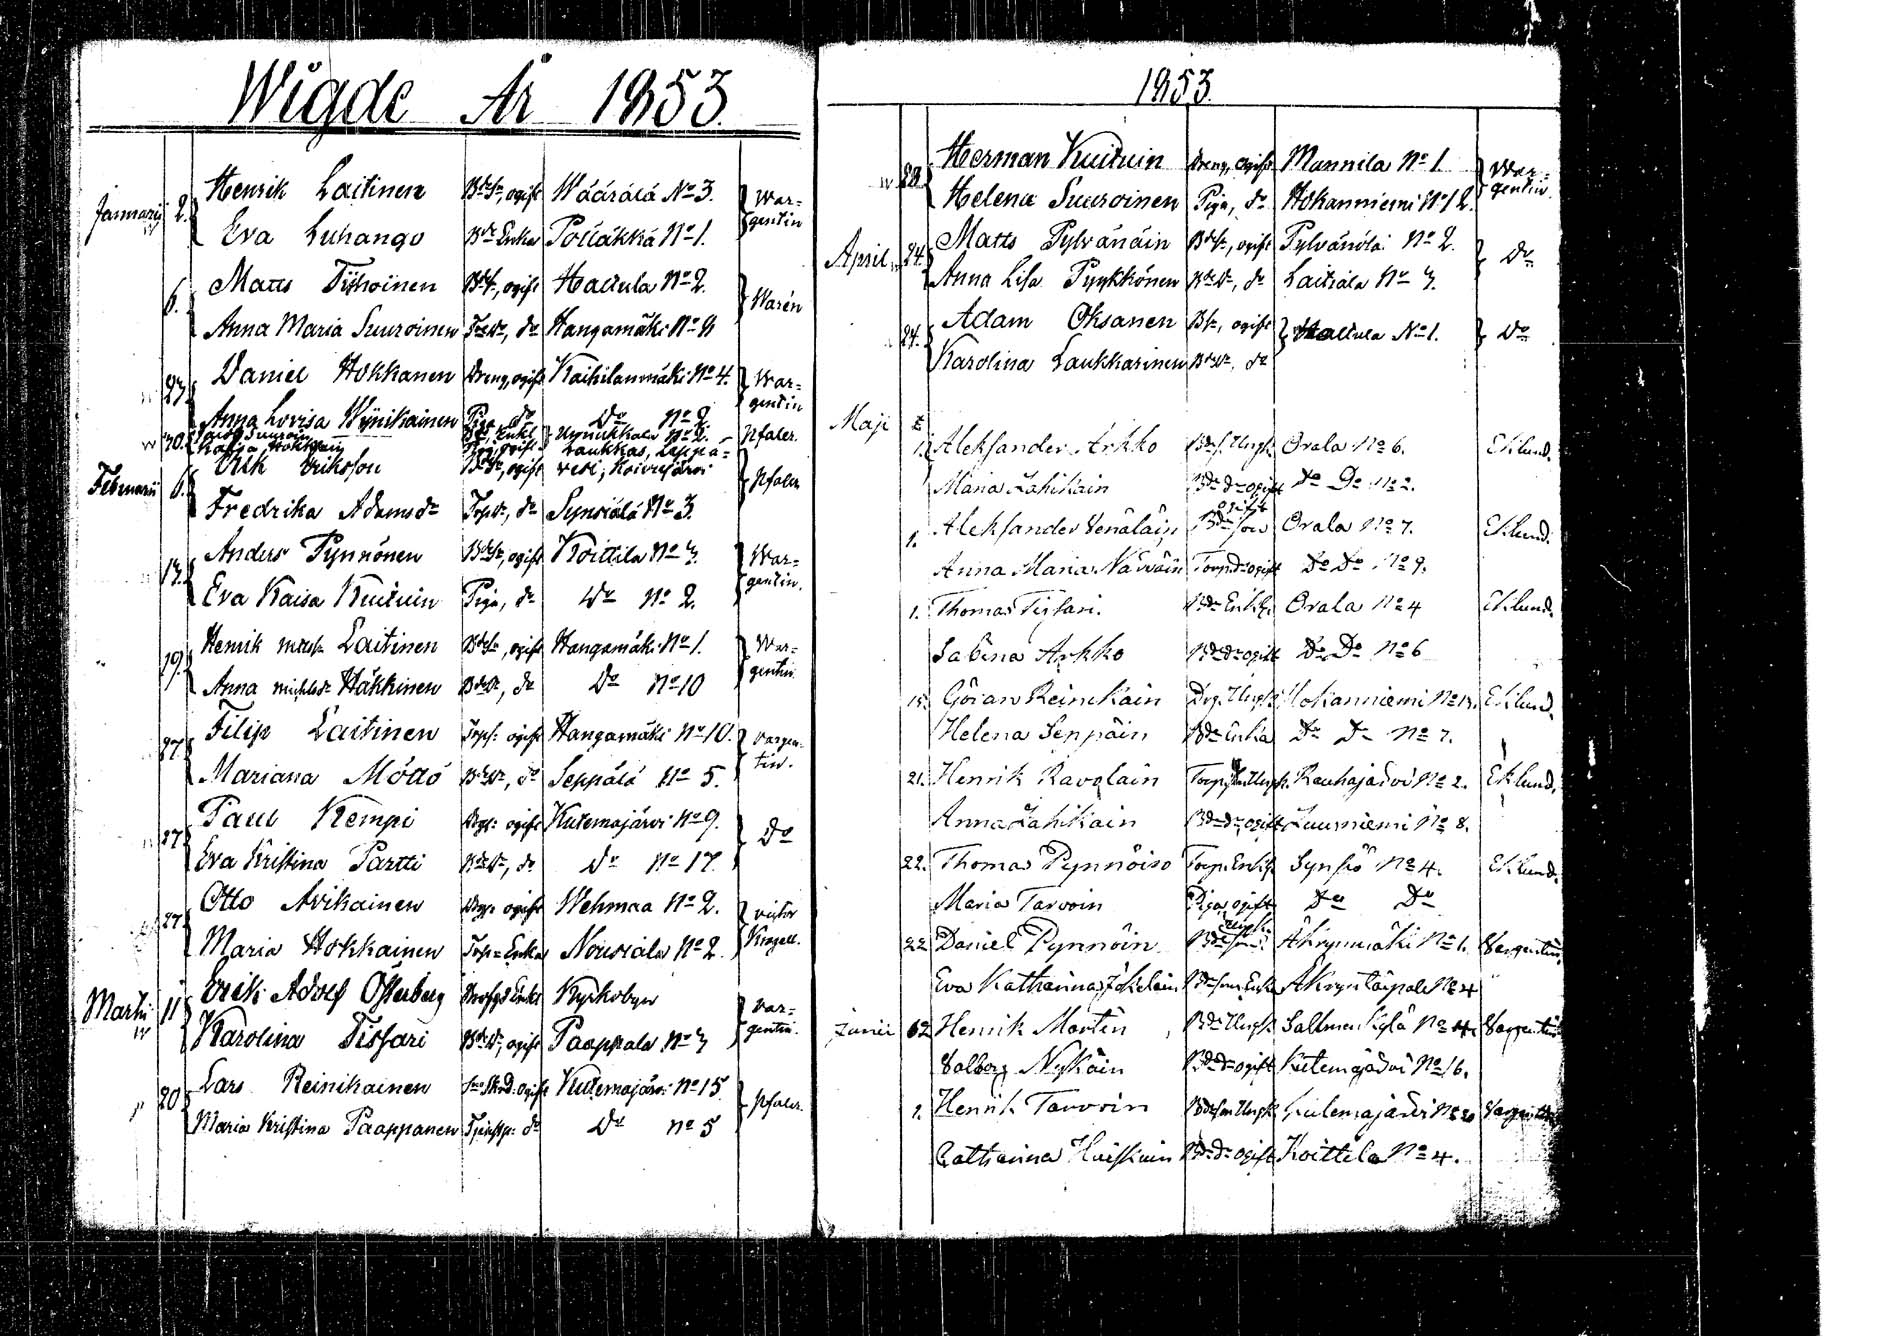 Wigde År 1853.
Januarii 2. Henrik Laitinen Bdeso, ogift Wäärälä No 3. War=
Eva Luhango Bde Enka Pölläkkä No 1. gentin
6. Matts Tijhoinen Bdso, ogift Hallula No 2. Warén
Anna Maria Suuroinen do Hangamäki No
27 Daniel Hokkanen Dreng, ogift Kaihilanmäki No 4. War=
gentin
Anna Lovisa Wynikainen Piga do Do No 2.
30. Enkl No 2. Pfaler.
Laukkas, Leppä=
Februarii 6. Erik Eriksson ogift vesi, Koivujärvi Pfaler
Fredrika Adamsdr do Synsiälä No 3.
17. Anders Pynnönen Bdeso, ogift Koittila No 7. War=
Eva Kaisa Kuituin Piga, do Do No 2. gentin.
19. Henrik Laitinen Bdeso, ogift Hangamäki No 1. War=
Anna Michelsdr Häkkinen do Do No 10 gentin
27 Filip Laitinen ogift Hangamäki No 10. Vargen=
Mariana Möttö do Seppälä No 5. tin.
27 Paul Kempi ogift Kutemajärvi No 9. Do
Eva Kristina Partti do Do No 17
27 Otto Avikainen ogift Wehmaa No 2. victor
Maria Hokkainen Enka Nousiala No 2. Krogell.
Martii 11 Erik Adolf Österberg Enkl Kyrkobyn Var=
Karolina Tissari ogift Paappala No 7 gentin.
20 Lars Reinikainen ogift Kutemajärvi No 15 Pfaler.
Maria Kristina Paappanen do Do No 5
1853.
28. Herman Kuituin Dreng, ogift Munnila No 1. War=
Helena Suuroinen Piga, do Hokanniemi No 12. gentin.
April 24. Matts Pylvänäin Bdeso, ogift Pylvänälä No 2. Do
Anna Lisa Pyykkönen do Laitiala No 7.
24. Adam Oksanen ogift Hallula No 1. Do
Karolina Laukkarinen do
Maji
1. Aleksander Arkko Ungk. Orala No 6. Eklund.
Maria Lahikain ogift Do Do No 2.
ogift
1. Aleksander Venäläin Bde son Orala No 7. Eklund.
Anna Maria Närväin ogift Do Do No 9.
1. Thomas Tissari. Bde Enkl. Orala No 4 Eklund.
Sabina Arkko ogift Do Do No 6
15. Göran Reinikain Drg. Ungk. Hokanniemi No Eklund.
Helena Seppäin Bde Enka Do Do No 7.
21. Henrik Ravolain Ungk. Rauhajärvi No 2. Eklund.
Anna Lahikain ogift Luuniemi No 8.
22. Thomas Pynnöiso Torp. Enkl. Synsiö No 4. Eklund.
Maria Tarvoin Piga ogift Do Do
22 Daniel Pynnöin Äkrynmäki No 1. Vargentin.
Eva Katharina Enka No 4
Junii 12 Henrik Martin Bde Ungk. No 4. Vargentin
Valborg Nykäin ogift Kutemajärvi No 16.
1. Henrik Tarvoin Ungk. Kutemajärvi No Vargentin
Catharina Huiskuin ogift Koittila No 4.